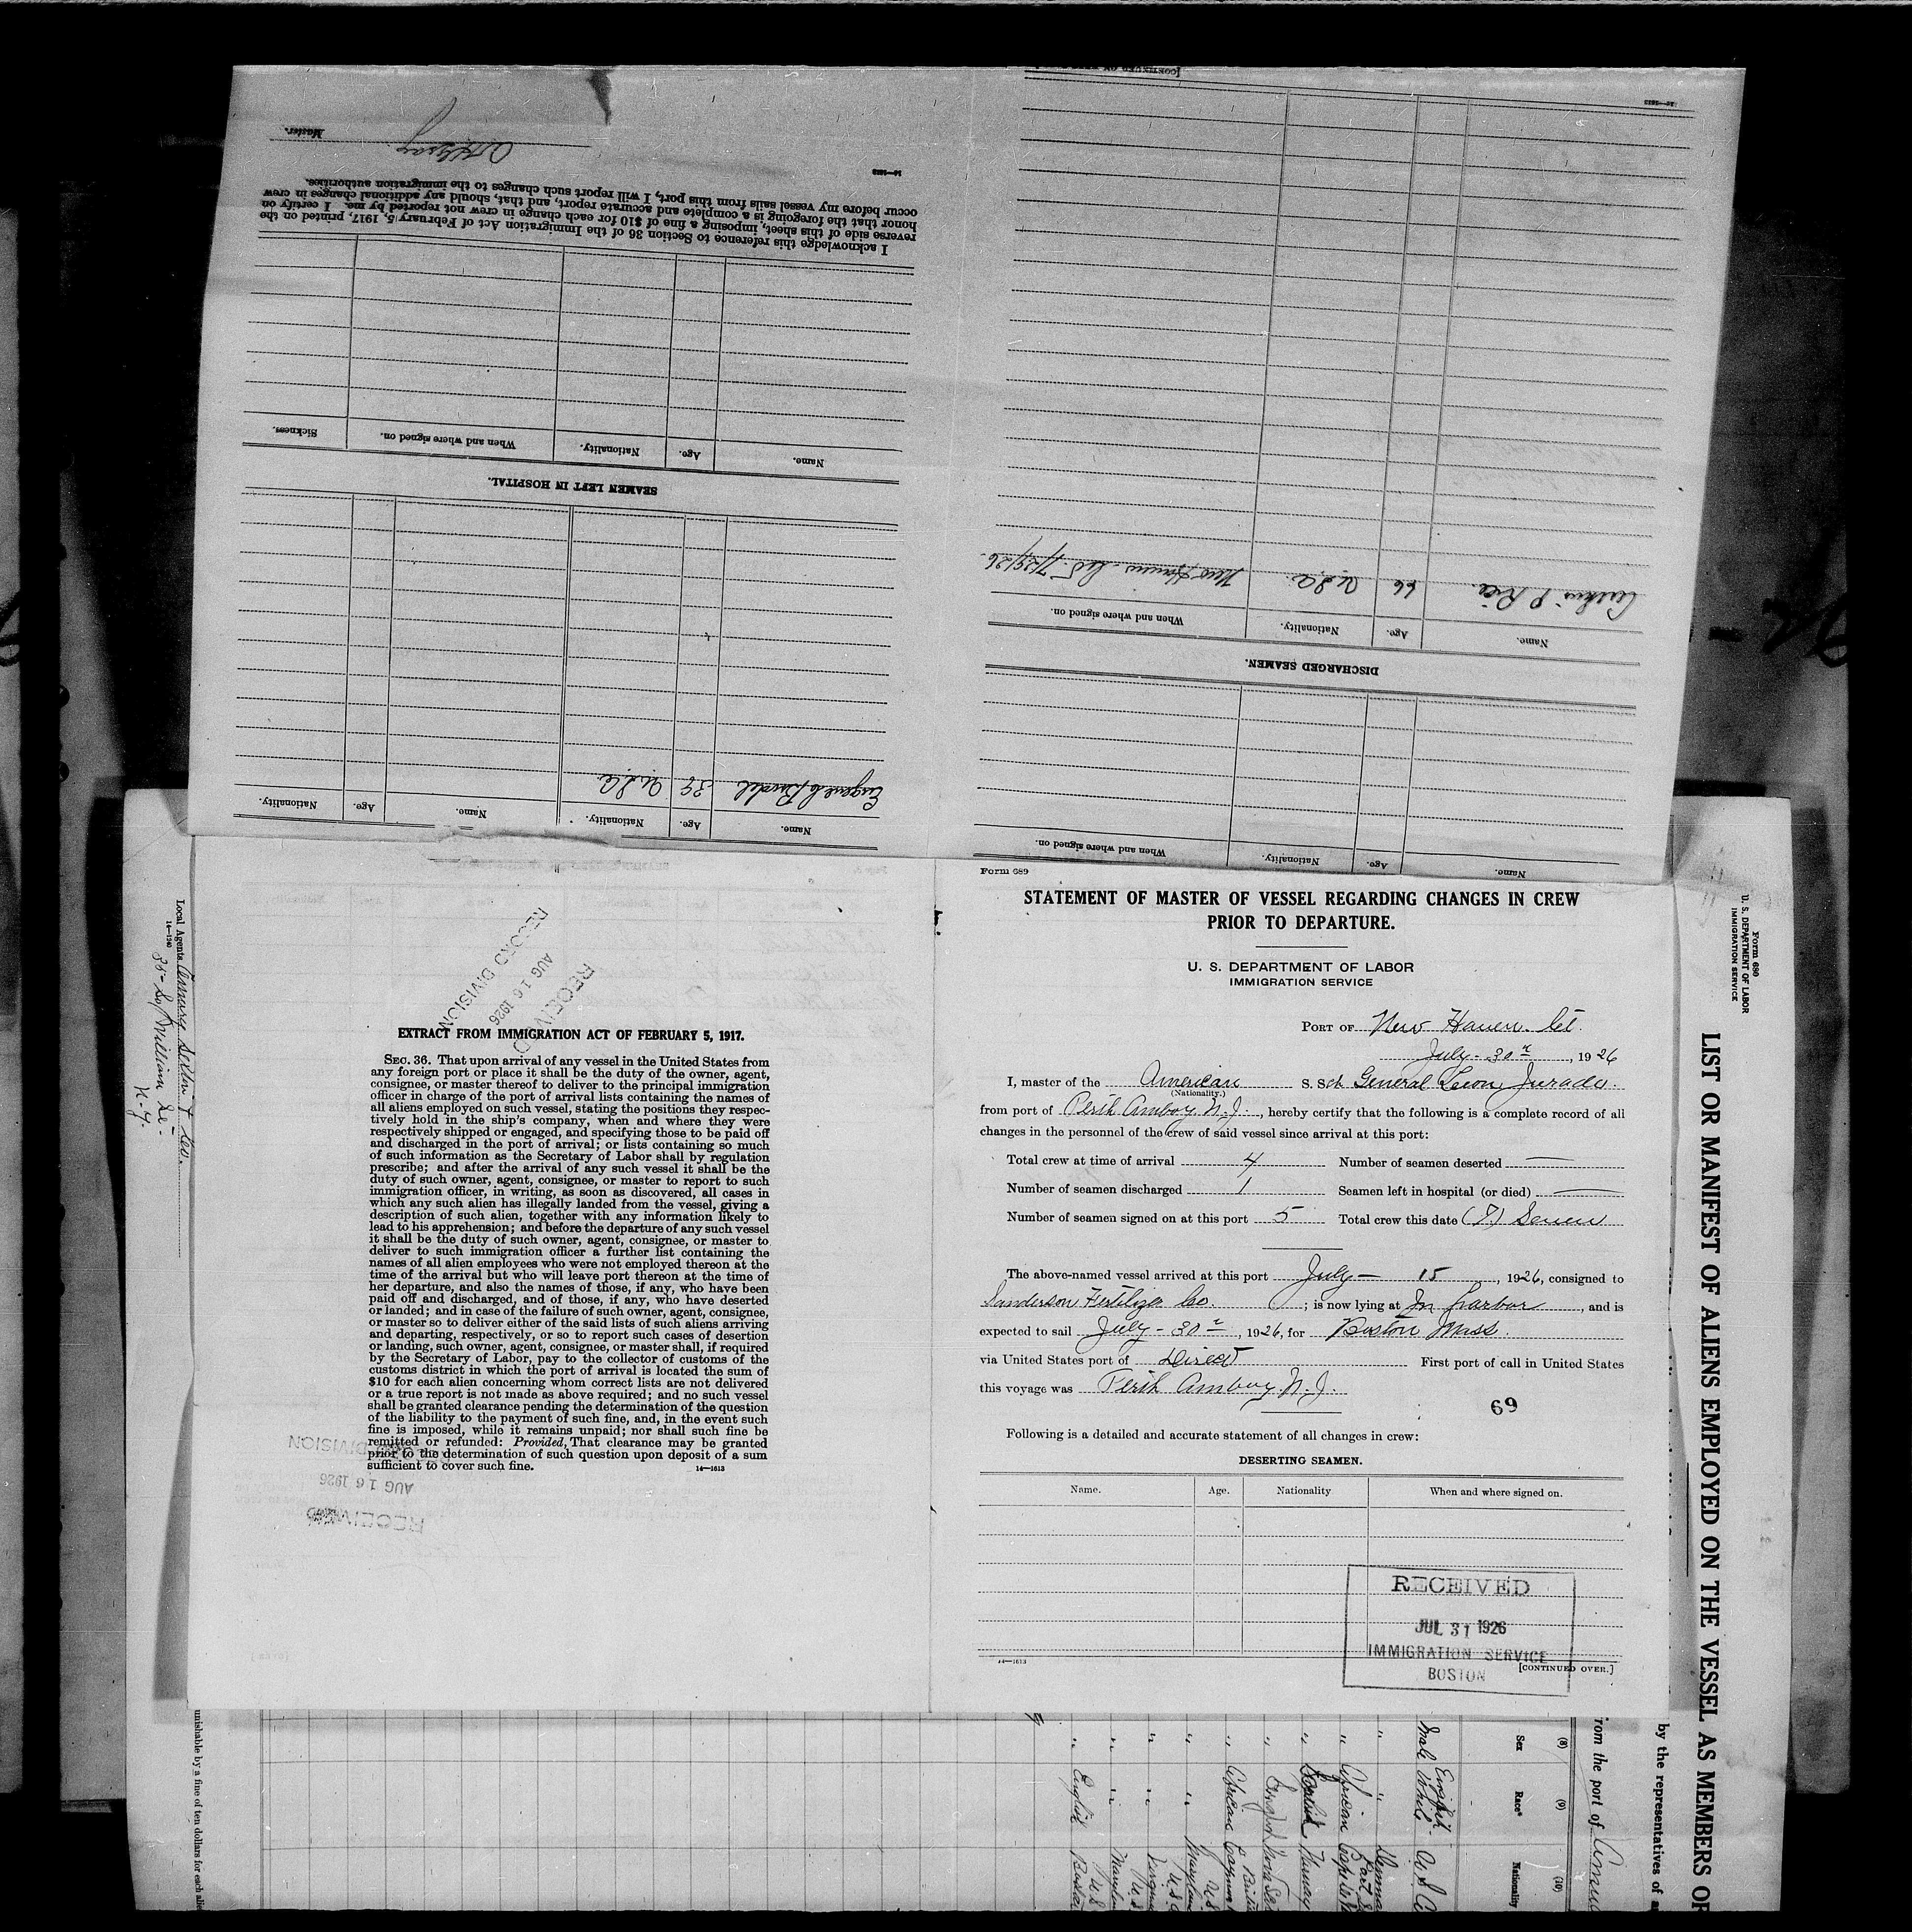 [CONTINUED
14—1613
DISCHARGED SEAMEN.
Name.
Age.
Nationality.
When and where signed on.
P Rice
66
U.S.A.
New Haven 7/29/26
Name.
Age.
Nationality.
When and where signed on.
Name.
Age.
Nationality.
Name.
Age.
Nationality.
Eugene
U.S.A
SEAMEN LEFT IN HOSPITAL.
Name.
Age.
Nationality.
When and where signed on.
Sickness.
I acknowledge this reference to Section 36 of the Immigration Act of February 5, 1917, printed on the
reverse side of this sheet, imposing a fine of $10 for each change in crew not reported by me. I certify on
honor that the foregoing is a complete and accurate report, and that, should any additional changes in crew
occur before my vessel sails from this port, I will report such changes to the immigration authorities.
14—1613
Master.
RECEIVED
AUG 16 1926
RECORD DIVISION
EXTRACT FROM IMMIGRATION ACT OF FEBRUARY 5, 1917.
SEC. 36. That upon arrival of any vessel in the United States from
any foreign port or place it shall be the duty of the owner, agent,
consignee, or master thereof to deliver to the principal immigration
officer in charge of the port of arrival lists containing the names of
all aliens employed on such vessel, stating the positions they respec-
tively hold in the ship's company, when and where they were
respectively shipped or engaged, and specifying those to be paid off
and discharged in the port of arrival; or lists containing so much
of such information as the Secretary of Labor shall by regulation
prescribe; and after the arrival of any such vessel it shall be the
duty of such owner, agent, consignee, or master to report to such
immigration officer, in writing, as soon as discovered, all cases in
which any such alien has illegally landed from the vessel, giving a
description of such alien, together with any information likely to
lead to his apprehension; and before the departure of any such vessel
it shall be the duty of such owner, agent, consignee, or master to
deliver to such immigration officer a further list containing the
names of all alien employees who were not employed thereon at the
time of the arrival but who will leave port thereon at the time of
her departure, and also the names of those, if any, who have been
paid off and discharged, and of those, if any, who have deserted
or landed; and in case of the failure of such owner, agent, consignee,
or master so to deliver either of the said lists of such aliens arriving
and departing, respectively, or so to report such cases of desertion
or landing, such owner, agent, consignee, or master shall, if required
by the Secretary of Labor, pay to the collector of customs of the
customs district in which the port of arrival is located the sum of
$10 for each alien concerning whom correct lists are not delivered
or a true report is not made as above required; and no such vessel
shall be granted clearance pending the determination of the question
of the liability to the payment of such fine, and, in the event such
fine is imposed, while it remains unpaid; nor shall such fine be
remitted or refunded: Provided, That clearance may be granted
prior to the determination of such question upon deposit of a sum
sufficient to cover such fine.
14—1613
DIVISION
AUG 16 1926
RECEIVED
Form 689
STATEMENT OF MASTER OF VESSEL REGARDING CHANGES IN CREW
PRIOR TO DEPARTURE.
U. S. DEPARTMENT OF LABOR
IMMIGRATION SERVICE
PORT OF New Haven. Ct.
July - 30, 1926
I, master of the American S. Sch General Leon Jurado.
(Nationality.)
from port of Perth Amboy N. J., hereby certify that the following is a complete record of all
changes in the personnel of the crew of said vessel since arrival at this port:
Total crew at time of arrival 4 Number of seamen deserted —
Number of seamen discharged 1 Seamen left in hospital (or died) —
Number of seamen signed on at this port 5 Total crew this date Seven
The above-named vessel arrived at this port July — 15, 1926, consigned to
Sanderson Fertilizer Co. ; is now lying at In harbor, and is
expected to sail July - 30, 1926, for Boston Mass.
via United States port of Direct First port of call in United States
this voyage was Perth Amboy N. J.
69
Following is a detailed and accurate statement of all changes in crew:
DESERTING SEAMEN.
Name. Age. Nationality When and where signed on.
RECEIVED
JUL 31 1926
IMMIGRATION SERVICE
BOSTON
14—1613
[CONTINUED OVER.]
Form 680
U. S. DEPARTMENT OF LABOR
IMMIGRATION SERVICE
LIST OR MANIFEST OF ALIENS EMPLOYED ON THE VESSEL AS MEMBERS OF
by the representatives of
from the port of
(8)
Sex
(9)
Race*
(10)
Nationality
Male
White
English
African
English
African
English
Local Agents
14—1240
William St
N-Y.
unishable by a fine of ten dollars for each